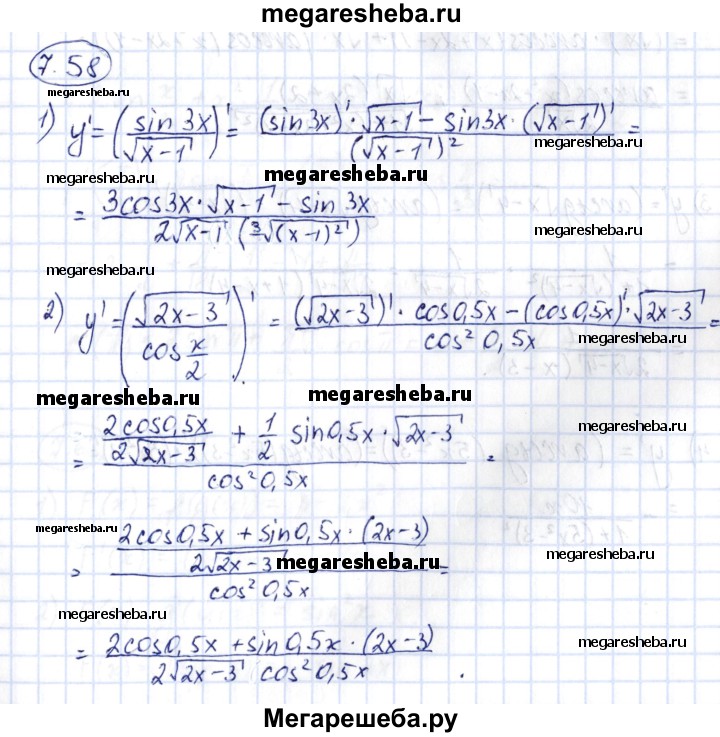 megaresheba.ru
7.58
megaresheba.ru
1) y' = (sin 3x / √(x-1))' = ((sin 3x)' · √(x-1) - sin3x · (√(x-1))') / (√(x-1))² =
megaresheba.ru
megaresheba.ru
megaresheba.ru
= (3cos3x · √(x-1) - sin 3x) / (2√(x-1) (³√(x-1)²))
megaresheba.ru
megaresheba.ru
megaresheba.ru
2) y' = (√(2x-3) / cos x/2)' = ((√(2x-3))' · cos0,5x - (cos0,5x)' · √(2x-3)) / cos² 0,5x =
megaresheba.ru
megaresheba.ru
= (2cos0,5x / 2√(2x-3) + 1/2 sin0,5x · √(2x-3)) / cos² 0,5x =
megaresheba.ru
megaresheba.ru
= ((2cos0,5x + sin0,5x · (2x-3)) / 2√(2x-3)) / cos² 0,5x =
megaresheba.ru
megaresheba.ru
megaresheba.ru
megaresheba.ru
= (2cos0,5x + sin0,5x · (2x-3)) / (2√(2x-3) cos² 0,5x).
megaresheba.ru
Мегарешеба.ру